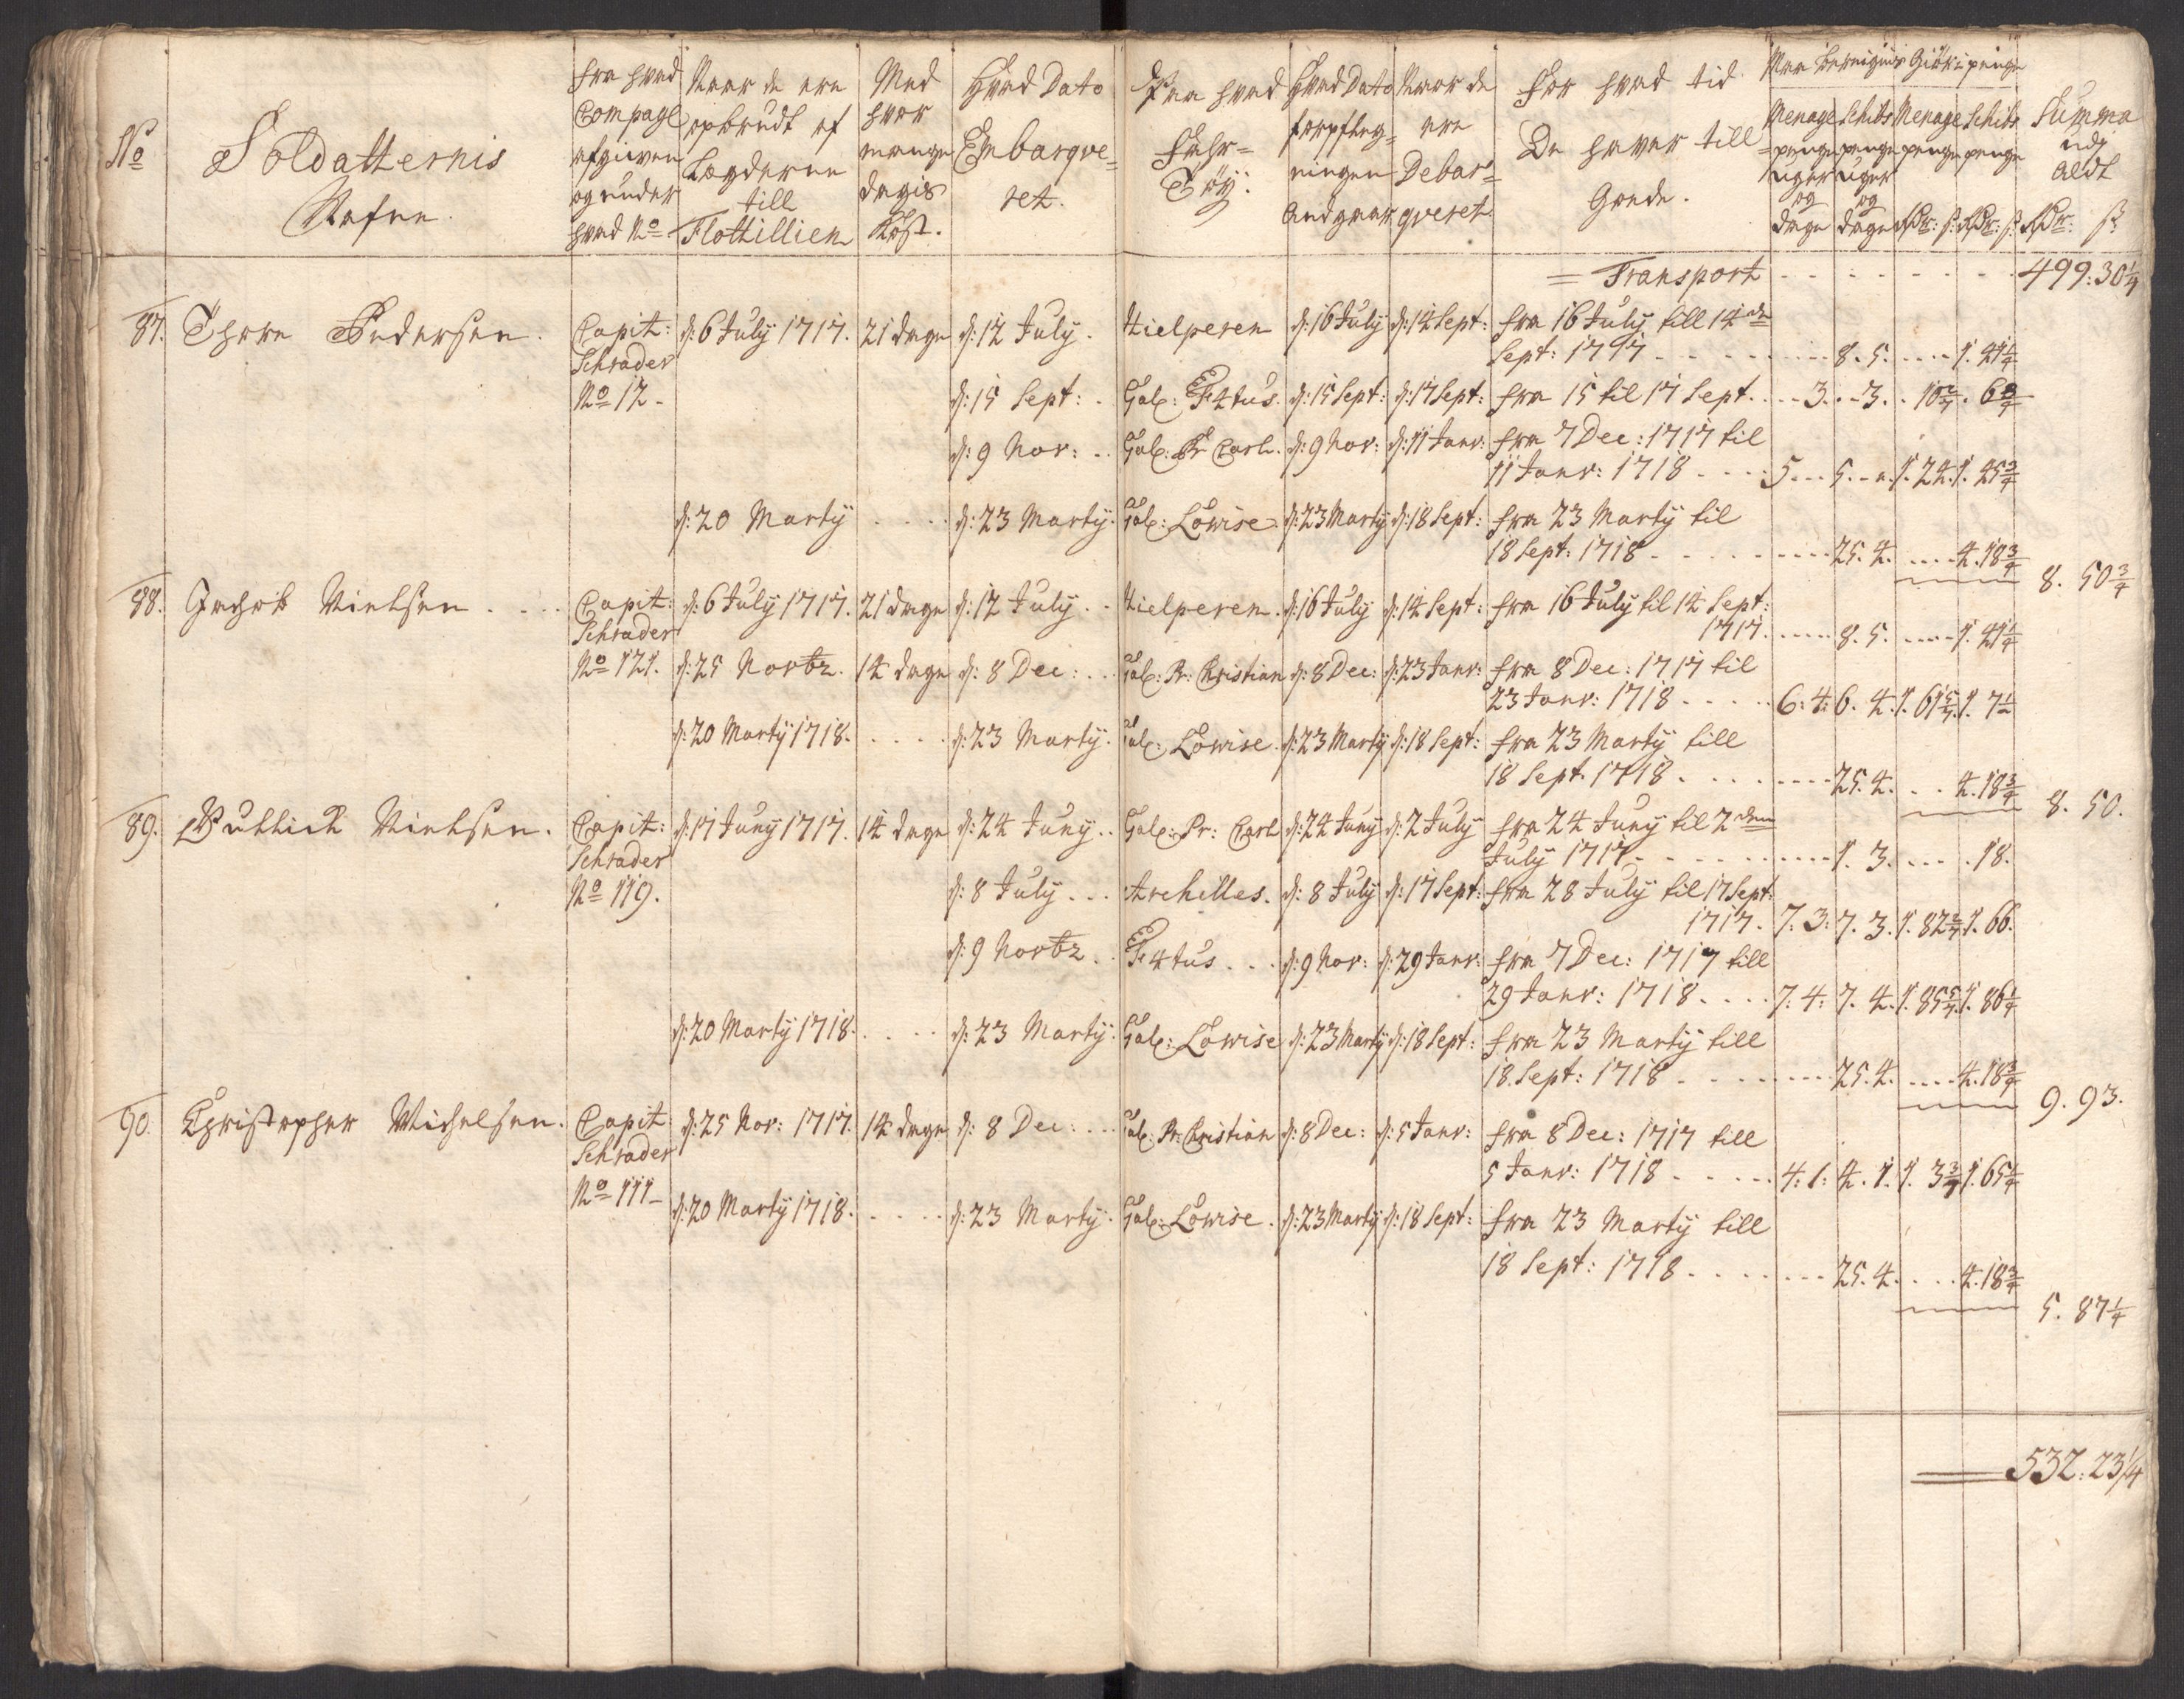 No
Soldatternis
Nafne.
Fra hvad
Compagl
afgiven
og under
hvad No
Naar de ere
opbrudt af
Lægderne
till
Flottillien
Med
hvor
mange
dagis
Kost.
Hvad Dato
Embarqve-
ret.
Paa hvad
Fahr-
Töy.
Hvad Dato
forpfleg-
ningen
Andgaar
Naar de
ere
Debar-
qveret.
For hvad tid
De haver till
Gode.
Naar bereignis Giör i penge
Menage penge uger og dage
Schibs penge uger og dage
Menage penge Rdr: s:
Schibs penge Rdr: s:
Summa
udj
aldt
Rdr: s:
= Transport - - - - - - - 499.30 1/4
87. Thore Pedersen. Capit: d: 6 July 1717. 21 dage d: 12 July. Hielperen d: 16 July d: 14 Sept: fra 16 July till 14de
Schrader Sept: 1717 - - - - - 8. 5. - - - 1. 41 1/4
No 12- d: 15 Sept: - Gal: Fr 4tus. d: 15 Sept: d: 17 Sept: fra 15 til 17 Sept. - - - 3. - 3. - 10 2/7. 6 3/4
d: 9 Nov: - - Gal: Pr Carl. d: 9 Nov: d: 11 Janv: fra 7 Dec: 1717 til
11 Janv: 1718 - - - 5 - - 5. - - 1. 24. 1. 45 3/4
d: 20 Marty - - - - d: 23 Marty. Gal: Lowise. d: 23 Marty d: 18 Sept: fra 23 Marty til
18 Sept: 1718 - - - - - 25. 4. - - - 4. 18 3/4
8. 50 3/4
88. Jachob Nielsen. - - - Capit: d: 6 July 1717. 21 dage d: 12 July. - Hielperen. d: 16 July d: 14 Sept: fra 16 July til 14 Sept:
Schrader 1717. - - - - 8. 5. - - - - 1. 41 1/4
No 121. d: 25 Novbr. 14 dage d: 8 Dec: - - Gal: Pr: Christian d: 8 Dec: d: 23 Janv: fra 8 Dec: 1717 til
23 Janv: 1718 - - - - - 6: 4: 6. 4. 1. 61 5/7. 1. 7 1/2
d: 20 Marty 1718. - - - - d: 23 Marty. Gal: Lowise. d: 23 Marty d: 18 Sept: fra 23 Marty till
18 Sept. 1718 - - - - - - - 25. 4. - - 4. 18 3/4
8. 50.
89. Nielsen. Capit: d: 17 Juny 1717. 14 dage d: 24 Juny. - Gal: Pr: Carl d: 24 Juny d: 2 July fra 24 Juny til 2den
Schrader July 1717 - - - - - - - - - 1. 3. - - - . 18.
No 119. d: 8 July. - - Archilles. d: 8 July d: 17 Sept: fra 28 July til 17 Sept:
1717. 7. 3: 7. 3. 1. 82 2/7. 1. 66.
d: 9 Novbr. - Fr 4tus. - - d: 9 Nov: d: 29 Janv: fra 7 Dec: 1717 till
29 Janv: 1718 - - - - 7: 4: 7. 4. 1. 85 5/7. 1. 86 1/4
d: 20 Marty 1718. - - - - d: 23 Marty: Gal: Lowise d: 23 Marty d: 18 Sept: fra 23 Marty till
18. Sept: 1718 - - - - - - - - 25. 4. - - - 4. 18 3/4
9. 93.
90. Christopher Michelsen. Capit d: 25 Nov: 1717. 14 dage d: 8 Dec: - - - Gal: Pr: Christian d: 8 Dec: d: 5 Janv: fra 8 Dec: 1717 till
Schrader 5 Janv: 1718 - - - - - 4: 1: 4. 1. 1. 3 3/7. 1. 65 1/4
No 111- d: 20 Marty 1718. - - - - d: 23 Marty. Gal: Lowise. d: 23 Marty d: 18 Sept: fra 23 Marty till
18 Sept: 1718 - - - - - - - 25. 4. - - - 4. 18 3/4
5. 87 1/4
532. 23 1/4